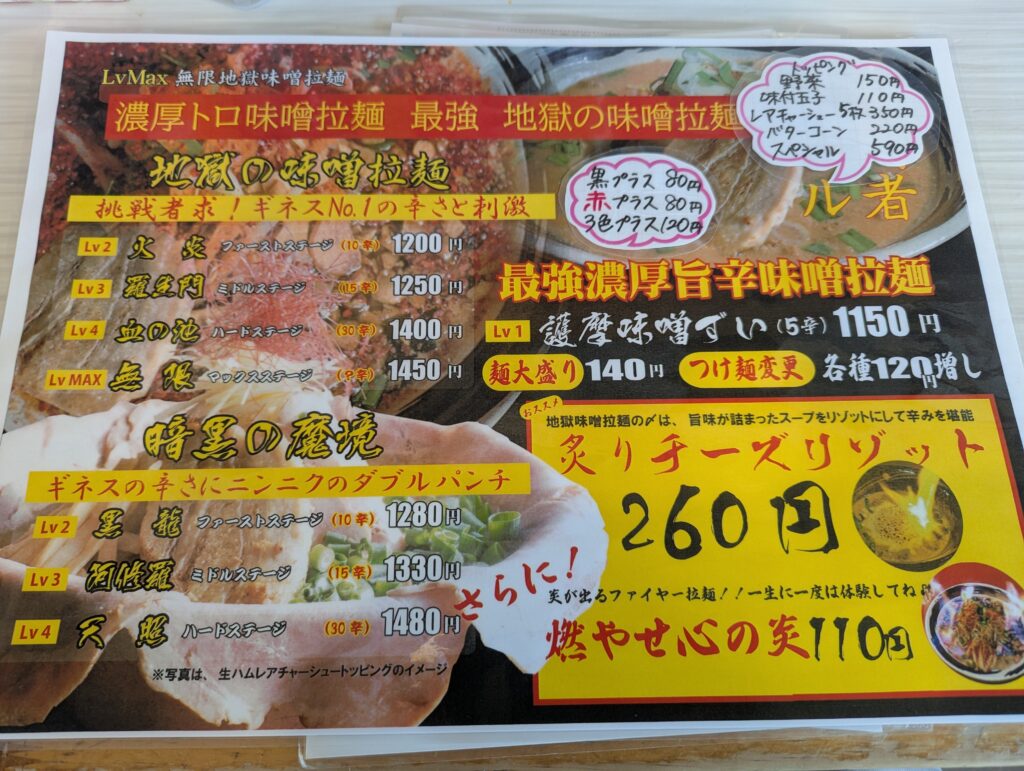 LvMax 無限地獄味噌拉麺
濃厚トロ味噌拉麺 最強 地獄の味噌拉麺
地獄の味噌拉麺
挑戦者求！ギネスNo.1の辛さと刺激
Lv 2 火炎 ファーストステージ (10辛) 1200円
Lv 3 羅生門 ミドルステージ (15辛) 1250円
Lv 4 血の池 ハードステージ (30辛) 1400円
Lv MAX 無限 マックスステージ (?辛) 1450円
暗黒の魔境
ギネスの辛さにニンニクのダブルパンチ
Lv 2 黒龍 ファーストステージ (10辛) 1280円
Lv 3 阿修羅 ミドルステージ (15辛) 1330円
Lv 4 天照 ハードステージ (30辛) 1480円
※写真は、生ハムレアチャーシュートッピングのイメージ
トッピング
野菜 150円
味付玉子 110円
レアチャーシュー5枚 350円
バターコーン 220円
スペシャル 590円
黒プラス 80円
赤プラス 80円
3色プラス120円
ル者
最強濃厚旨辛味噌拉麺
Lv 1 護摩味噌ずい (5辛) 1150円
麺大盛り 140円 つけ麺変更 各種120円増し
おススメ
地獄味噌拉麺の〆は、旨味が詰まったスープをリゾットにして辛みを堪能
炙りチーズリゾット
260円
さらに！
炎が出るファイヤー拉麺！！一生に一度は体験してね♪
燃やせ心の炎110円